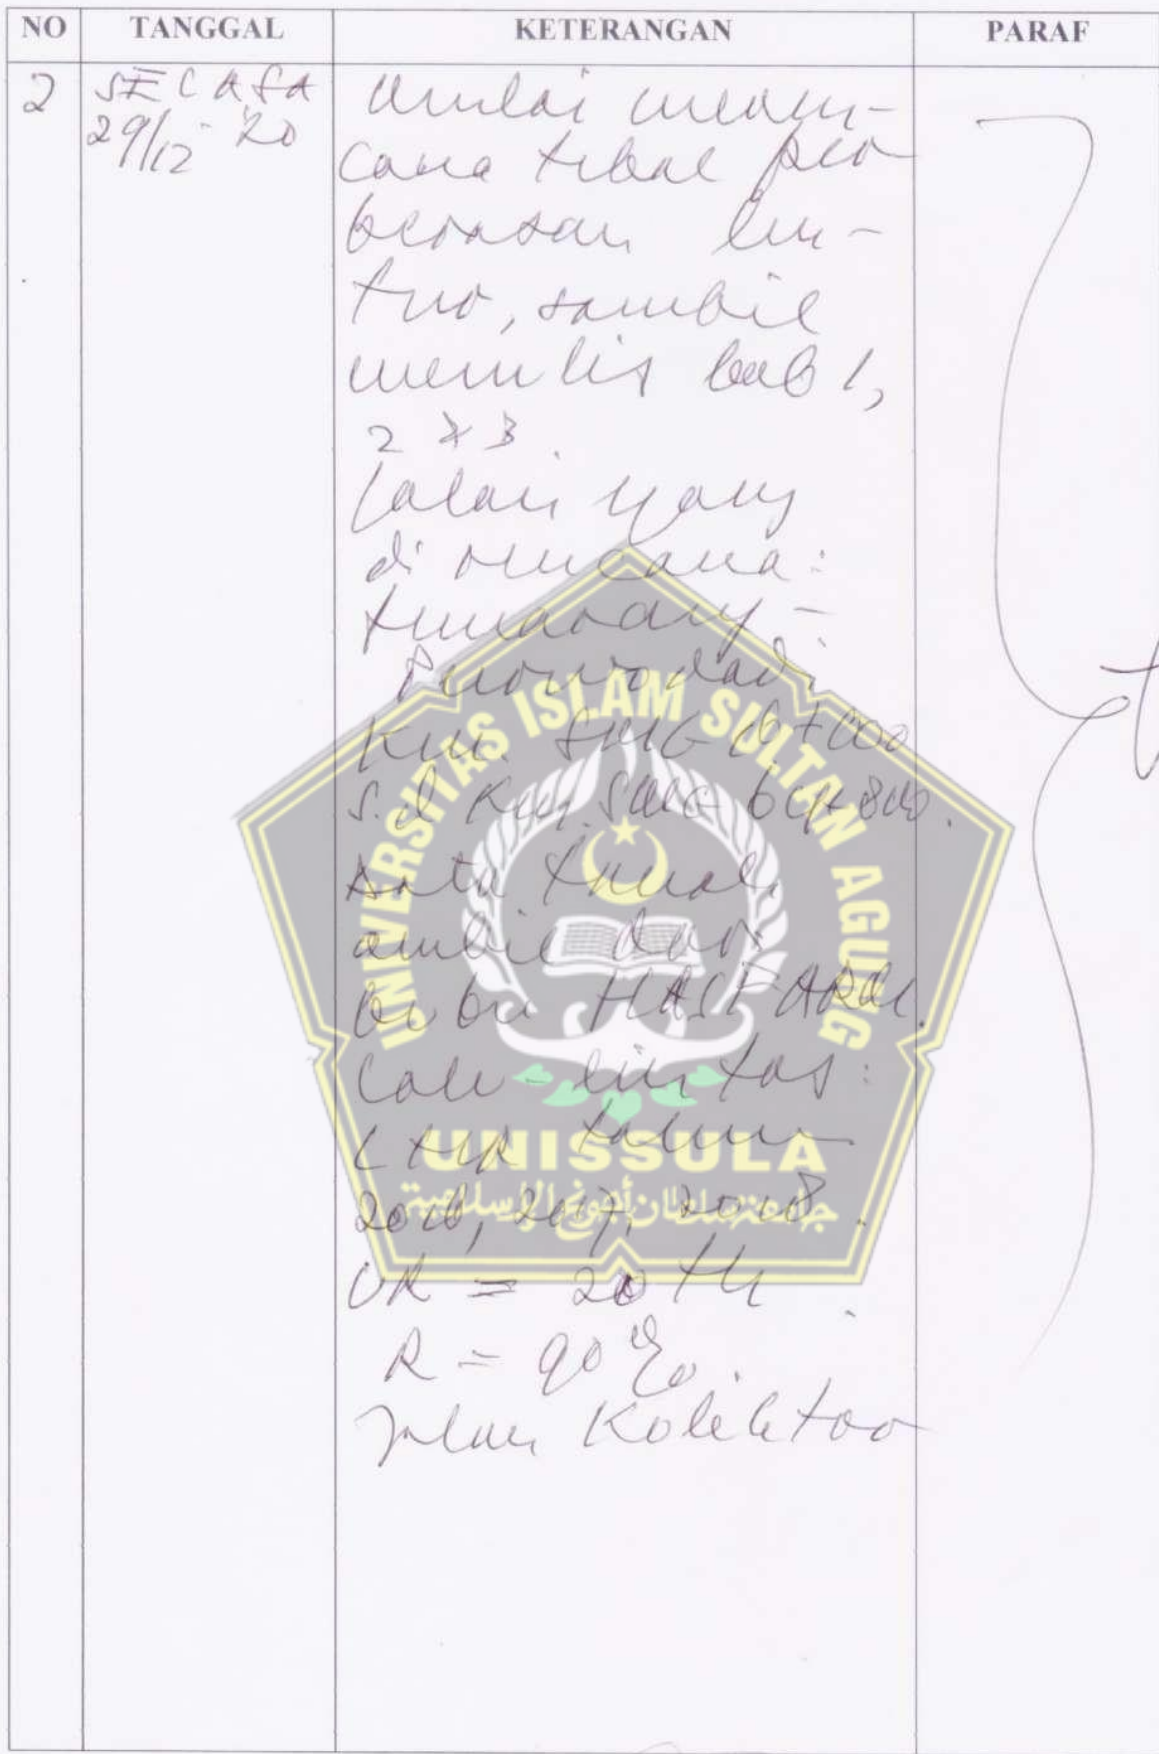 NO TANGGAL KETERANGAN PARAF
2 SELASA
29/12 - 20
Mulai meren-
cana tebal per
kerasan len-
tur, sambil
menulis bab 1,
2 & 3.
Jalan yang
di rencana:
Semarang -
Purwodadi
Km. SMG
s.d Km. SMG
Data tanah
ambil dari
bu
Lalu-lintas:
LHR tahun
2016, 2017, 2018.
UR = 20 th.
R = 90%.
Jalan Kolektor
UNIVERSITAS ISLAM SULTAN AGUNG
UNISSULA
جامعة سلطان أجونج الإسلامية